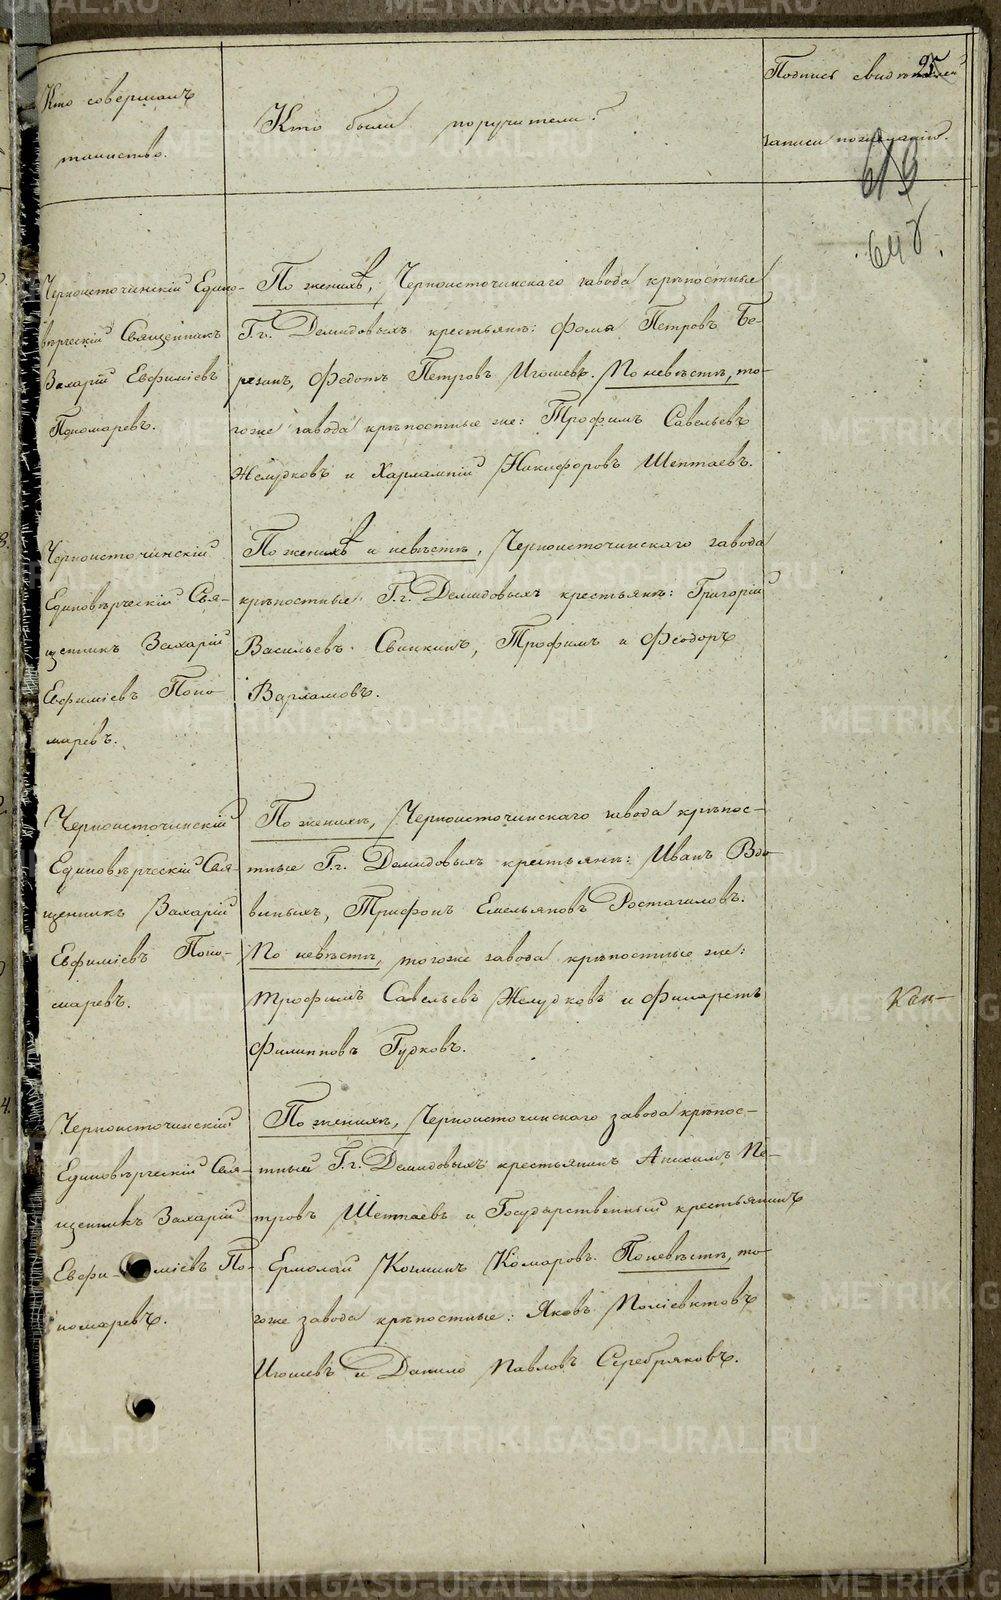 95
Кто совершалъ
таинство.
Кто были поручители?
Подпись свидѣтелей
записи по желанію.
619
648.
Черноисточинскій Едино-
вѣрческій Священникъ
Захарій Евфиміевъ
Пономаревъ.
По женихѣ, Черноисточинскаго завода крѣпостные
Г.г. Демидовыхъ крестьяне: Фома Петровъ Бе-
резинъ, Федотъ Петровъ Игошевъ. По невѣстѣ, то-
гоже завода крѣпостные же: Трофимъ Савельевъ
Желудковъ и Харлампій Никифоровъ Шептаевъ.
8.
Черноисточинскій
Единовѣрческій Свя-
щенникъ Захарій
Евфиміевъ Поно-
маревъ.
По женихѣ и невѣстѣ, Черноисточинскаго завода
крѣпостные Г.г. Демидовыхъ крестьяне: Григорій
Васильевъ Свинкинъ, Трофимъ и Феодоръ
Варламовъ.
Черноисточинскій
Единовѣрческій Свя-
щенникъ Захарій
Евфиміевъ Поно-
маревъ.
По женихѣ, Черноисточинскаго завода крѣпос-
тные Г.г. Демидовыхъ крестьяне: Иванъ Вдо-
виныхъ, Трифонъ Емельяновъ Ростагиловъ.
По невѣстѣ, тогоже завода крѣпостные же:
Трофимъ Савельевъ Желудковъ и Филаретъ
Филипповъ Гудковъ.
Кон-
4.
Черноисточинскій
Единовѣрческій Свя-
щенникъ Захарій
Евфи-міевъ По-
номаревъ.
По женихѣ, Черноисточинскаго завода крѣпос-
тный Г.г. Демидовыхъ крестьянинъ Анисимъ Пе-
тровъ Шептаевъ и Государственный крестьянинъ
Ермолай Комаровъ. По невѣстѣ, то-
гоже завода крѣпостные: Яковъ Поліевктовъ
Игошевъ и Данило Павловъ Серебряковъ.
METRIKI.GASO-URAL.RU